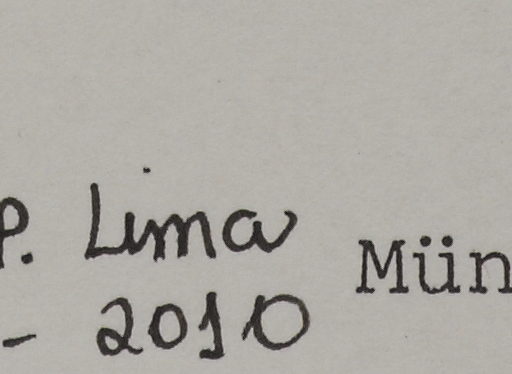 P. Lima
- 2010
Mün